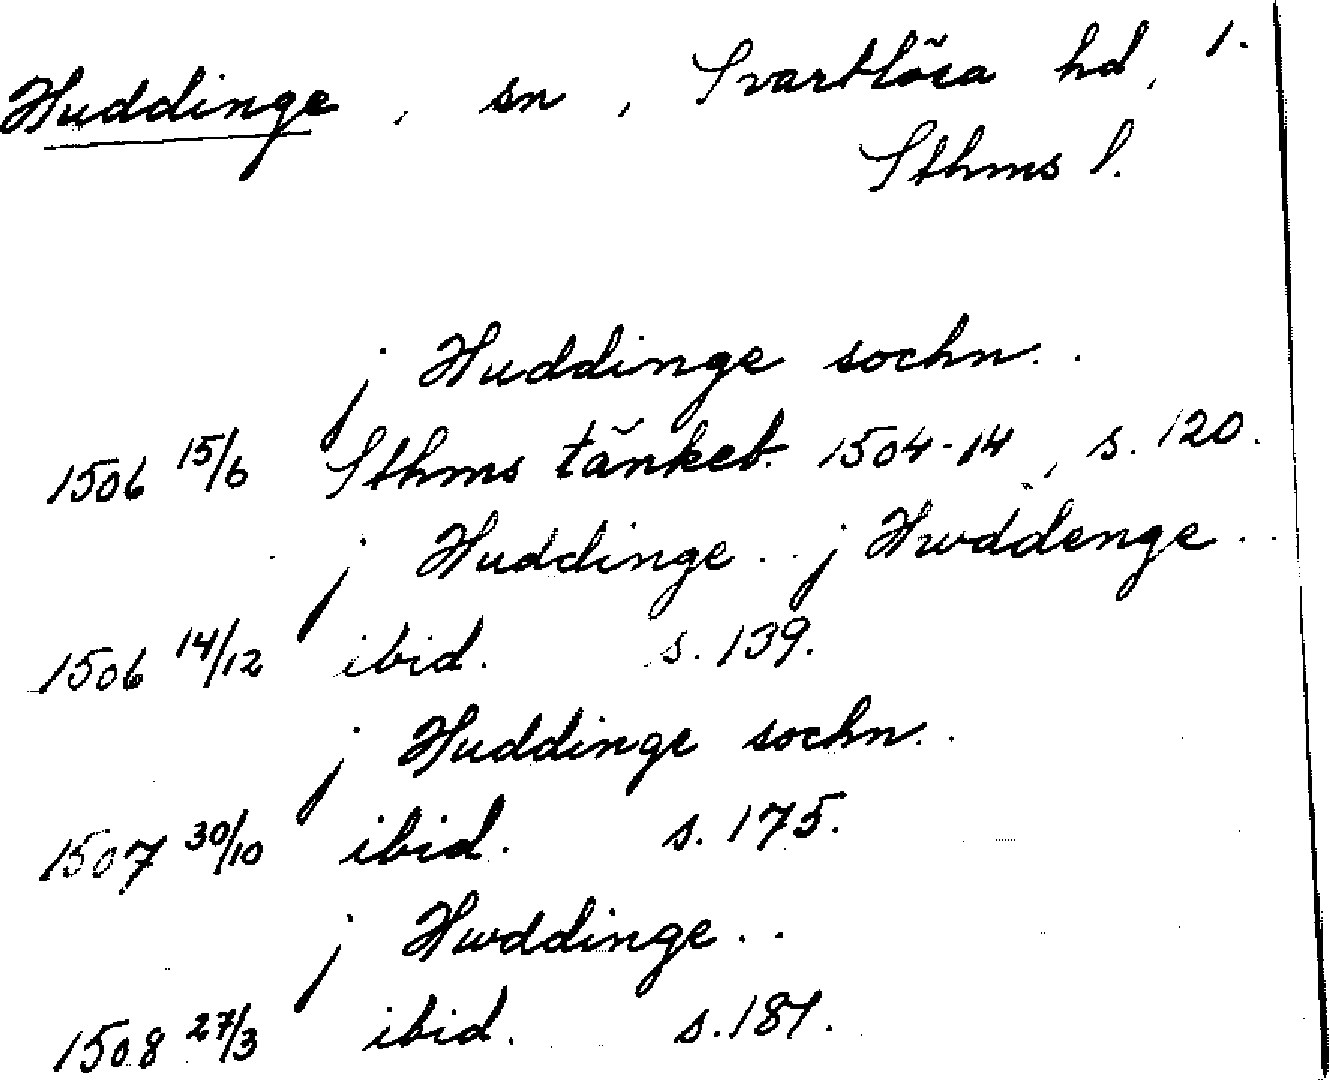 Huddinge, sn, Svartlösa hd, 1.
Sthms l.
j Huddinge sochn..
1506 15/6 Sthms tänkeb. 1504-14, s. 120.
j Huddinge.. j Hwddenge..
1506 14/12 ibid. s. 139.
j Huddinge sochn..
1507 30/10 ibid. s. 175.
j Hwddinge..
1508 27/3 ibid. s. 187.